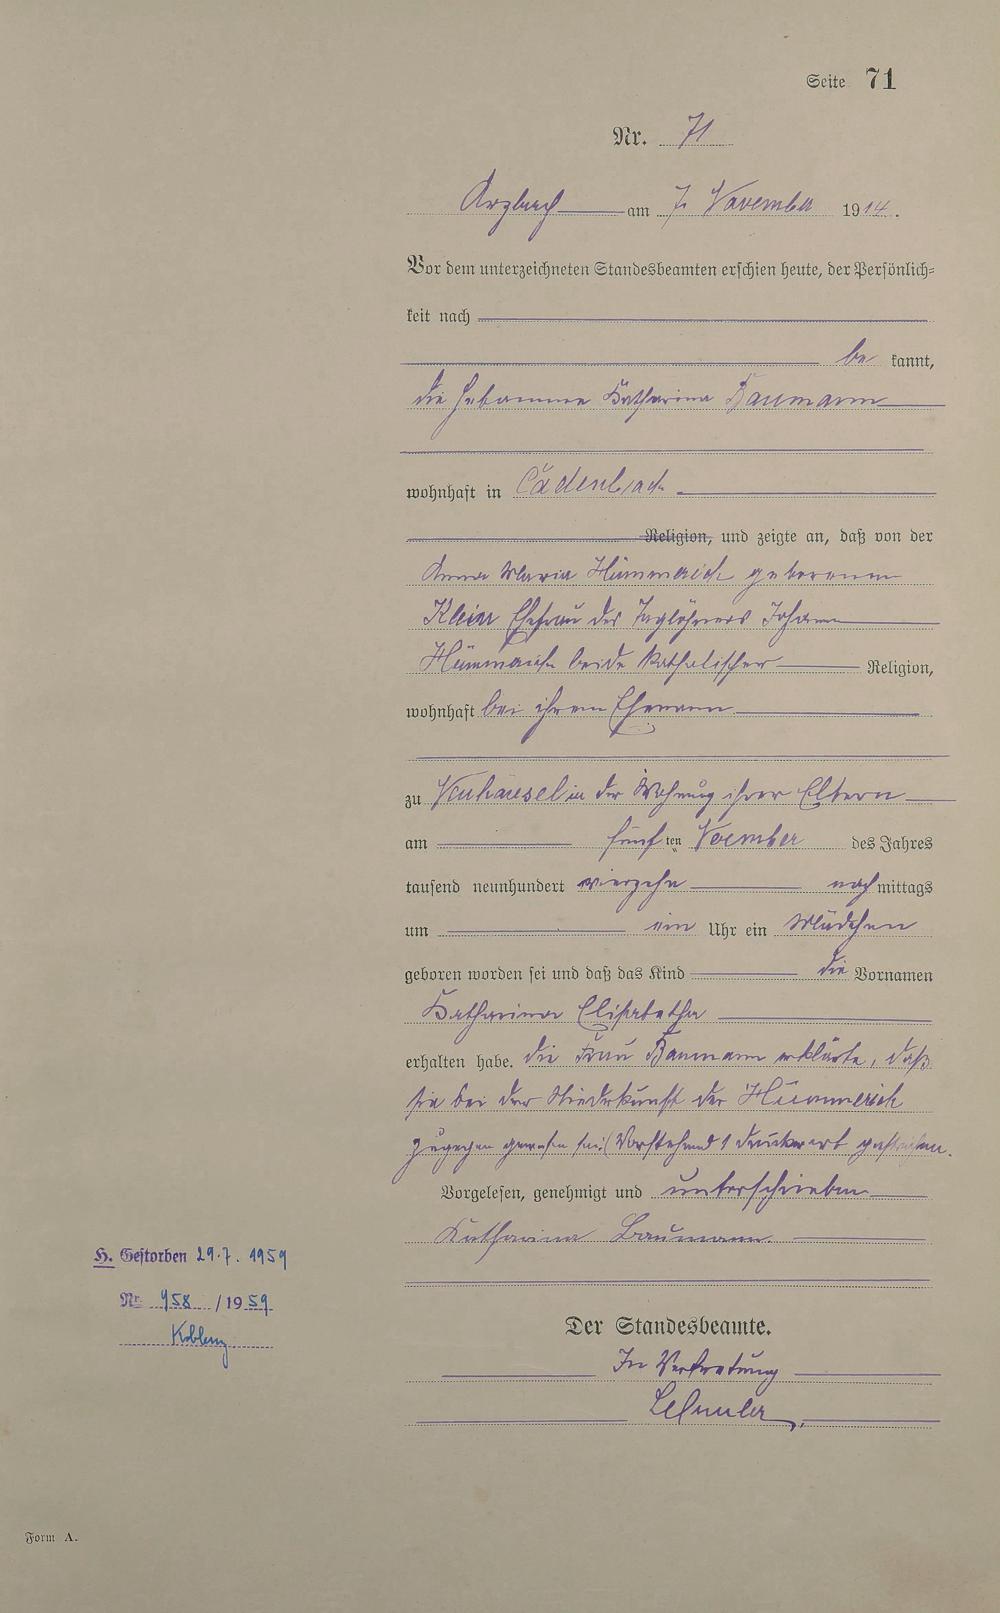 Seite 71
Nr. 71
Arzbach am 7. November 1914.
Vor dem unterzeichneten Standesbeamten erschien heute, der Persönlich-
keit nach
be kannt,
die Hebamme Katharina Baumann
wohnhaft in Cadenbach
Religion, und zeigte an, daß von der
Anna Maria Hümmerich geborenen
Klein Ehefrau des Taglöhners Johann
Hümmerich beide katholischer Religion,
wohnhaft bei ihrem Ehemann
zu Neuhäusel in der Wohnung ihrer Eltern
am fünften November des Jahres
tausend neunhundert vierzehn nachmittags
um ein Uhr ein Mädchen
geboren worden sei und daß das Kind die Vornamen
Katharina Elisabetha
erhalten habe. Die Frau Baumann erklärte, daß
sie bei der Niederkunft der Hümmerich
zugegen gewesen sei. (Vorstehend 1 Druckwort gestrichen.
Vorgelesen, genehmigt und unterschrieben
Katharina Baumann
H. Gestorben 29.7. 1959
Nr. 958 / 1959
Koblenz
Der Standesbeamte.
In Vertretung
Form A.